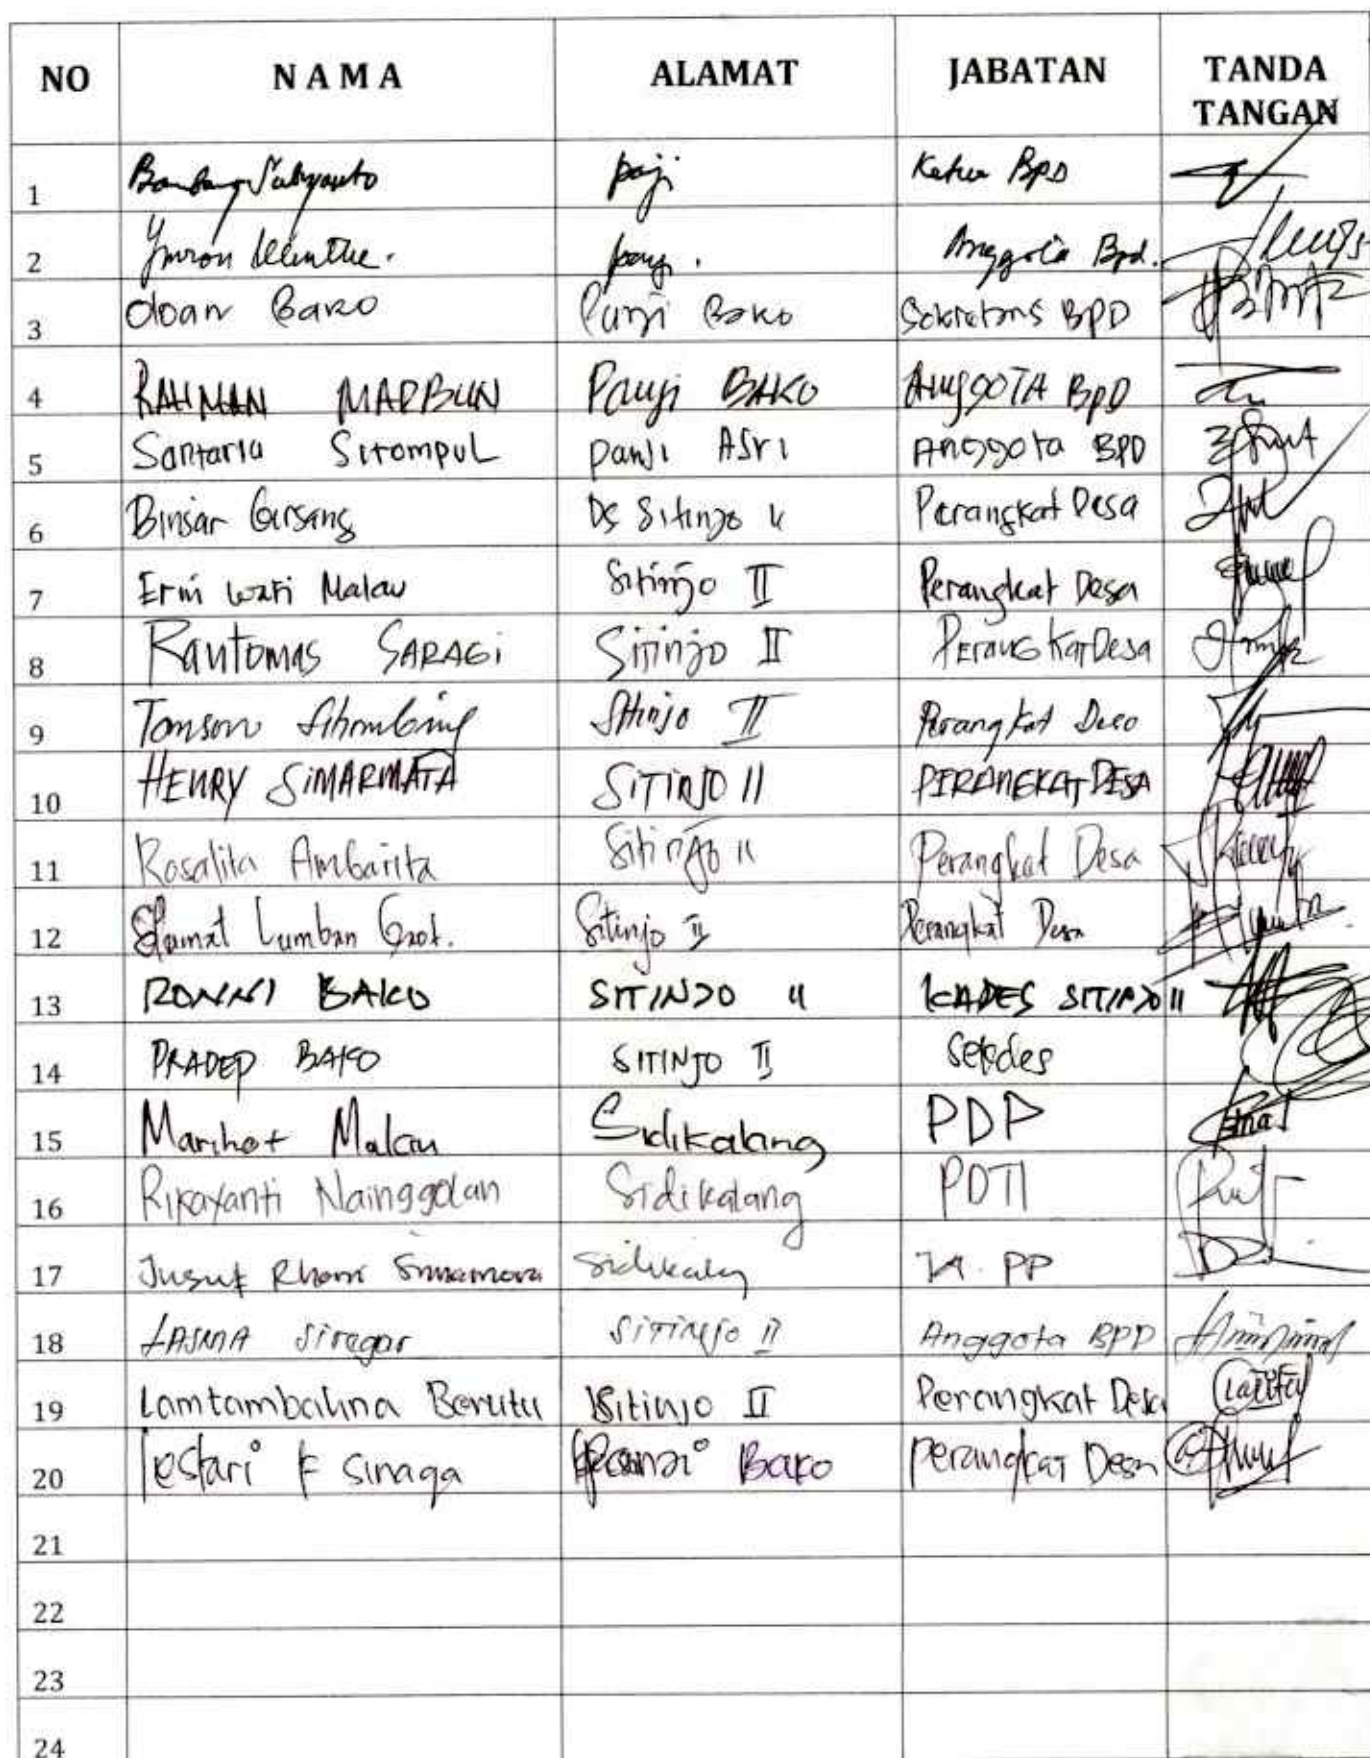 NO NAMA ALAMAT JABATAN TANDA TANGAN
1 Bambang Sahyanto panji Ketua BPD
2 Ymron Munthe. panji. Anggota Bpd.
3 Doan Bako Panji Bako Sekretaris BPD
4 RAHMAN MARBUN Panji BAKO ANGGOTA BPD
5 Santaria Sitompul Panji ASri Anggota BPD
6 Binsar Girsang Ds Sitinjo II Perangkat Desa
7 Erni wati Malau Sitinjo II Perangkat Desa
8 Rantomas SARAGi Sitinjo II Perangkat Desa
9 Tomson Sihombing Sitinjo II Perangkat Desa
10 HENRY SiMARMATA SiTiNJO II PERANGKAT DESA
11 Rosalita Ambarita Sitinjo II Perangkat Desa
12 Slamat Lumban Gaol. Sitinjo II Perangkat Desa
13 RONNI BAKO SITINJO II KADES SITINJO II
14 PRADEP BAKO SITINJO II Sekdes
15 Marihot Malau Sidikalang PDP
16 Rikayanti Nainggolan Sidikalang PDTI
17 Jusuf Rhom Simamora Sidikalang PP
18 LASMA Siregar SiTiNJO II Anggota BPD
19 Lamtambahna Berutu Sitinjo II Perangkat Desa
20 lestari F Sinaga Panji Bako Perangkat Desa
21
22
23
24